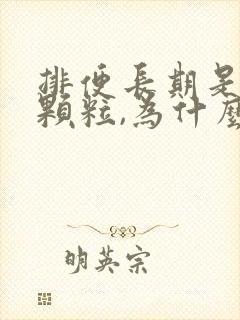 排便長期是
顆粒,為什麼
明英宗